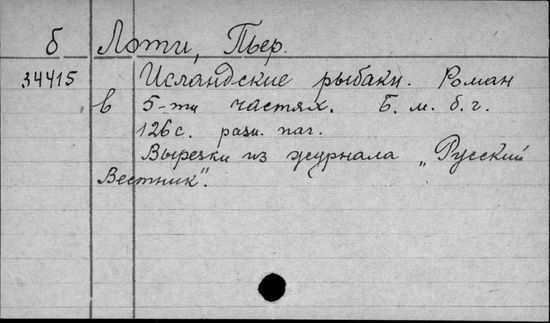 б Лоти, Пьер.
34415 Исландские рыбаки. Роман
в 5-ти частях. Б. м. б. г.
126 с. разн. паг.
Вырезки из журнала „Русский
Вестник".